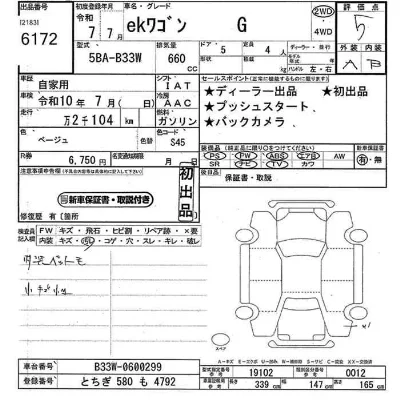 出品番号 初度登録年月 車名・グレード 評価点
[2183] 令和 2WD
6172 7年7月 ekワゴン G 4WD 5
型式 排気量 ドア 定員 外装 内装
5BA-B33W 660 cc 5 4人 ディーラー・並行 ハンドル 左・右 A B
車歴 自家用 シフト IAT セールスポイント
車検 令和10年7月 冷房 AAC ★ディーラー出品 ★初出品
走行 2千104km 燃料 ガソリン ★プッシュスタート
色 ベージュ 色替 色コード S45 ★バックカメラ
R券 6,750円 名変通知期限 月 日 PS PW ABS エアB AW 有・無
SR ナビ TV カワ
注意事項申告欄 初出品 後日品 保証書・取説
新車保証書・取説付き
修復歴 有(箇所
検査員記入欄 FW キズ・飛石・ヒビ割・リペア跡・×要
内装 キズ・汚・コゲ・穴・スレ・キレ・破レ
小キズ小凹
スペア
車台番号 B33W-0600299 型式指定番号 19102 類別区分番号 0012
登録番号 とちぎ 580 も 4792 長さ 339 幅 147 高さ 165